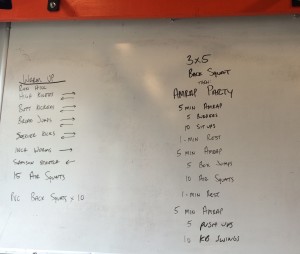 Warm Up
Run Hill
High Knees
Butt Kickers
Broad Jumps
Soldier Kicks
Inch Worms
15 Air Squats
PVC Back Squats x 10
3x5
Back Squat
then
AMRAP Party
5 min AMRAP
5 Burpees
10 Sit ups
1-min Rest
5 min AMRAP
5 Box Jumps
10 Air Squats
1-min Rest
5 min AMRAP
5 Push ups
10 KB Swings